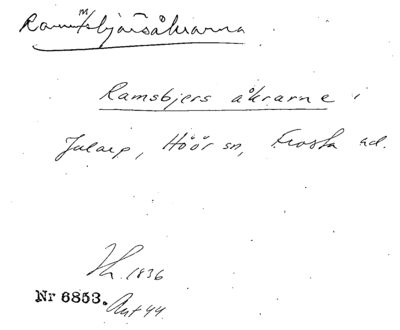 Ramsbjärsåkrarna
Ramsbjers åkrarne i
Jularp, Höör sn, Frosta hd.
1836
Nr 6853. Avt 44